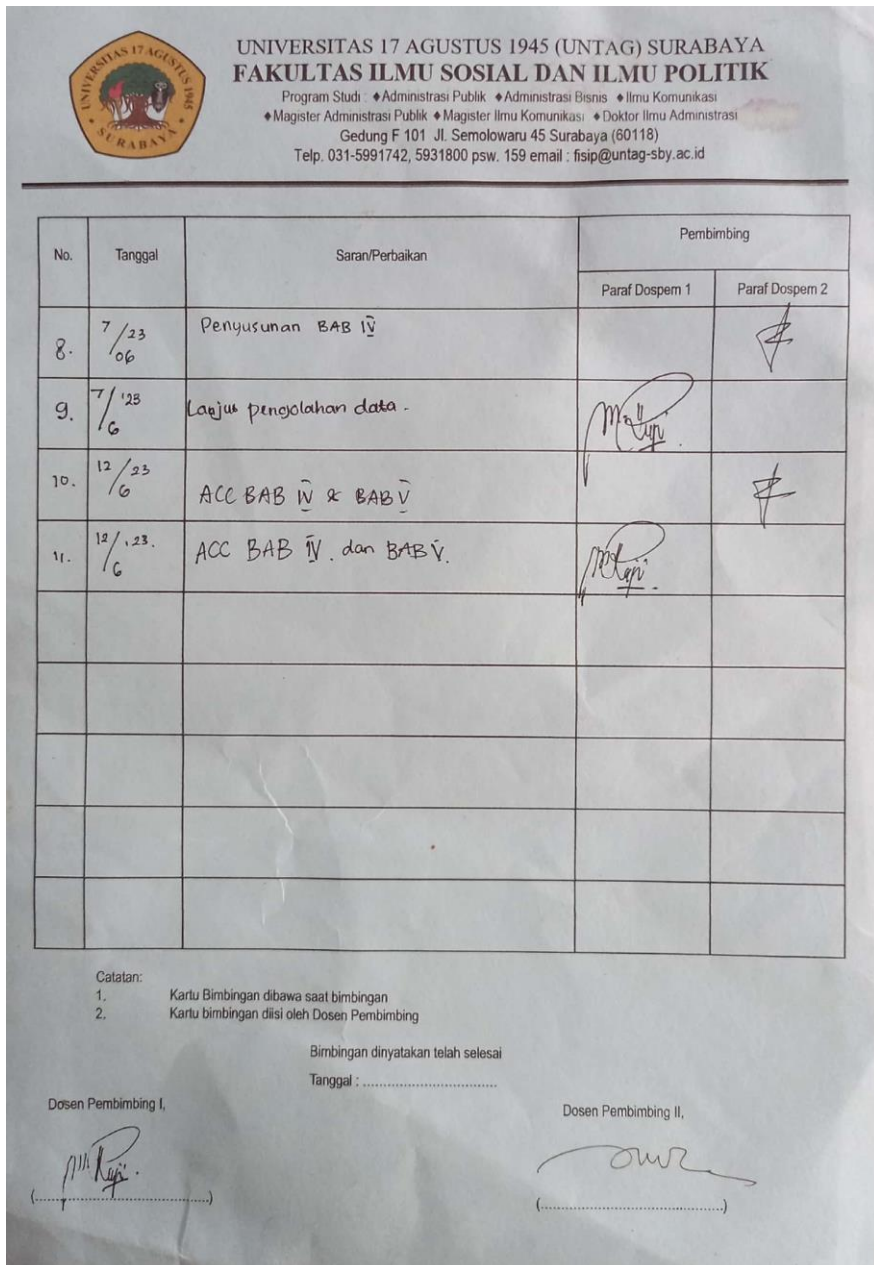 UNIVERSITAS 17 AGUSTUS 1945
SURABAYA
UNIVERSITAS 17 AGUSTUS 1945 (UNTAG) SURABAYA
FAKULTAS ILMU SOSIAL DAN ILMU POLITIK
Program Studi : ♦Administrasi Publik ♦Administrasi Bisnis ♦Ilmu Komunikasi
♦Magister Administrasi Publik ♦Magister Ilmu Komunikasi ♦Doktor Ilmu Administrasi
Gedung F 101 Jl. Semolowaru 45 Surabaya (60118)
Telp. 031-5991742, 5931800 psw. 159 email : fisip@untag-sby.ac.id
No. Tanggal Saran/Perbaikan Pembimbing
Paraf Dospem 1 Paraf Dospem 2
8. 7/06/23 Penyusunan BAB IV
9. 7/6 '23 Lanjut pengolahan data.
10. 12/6/23 ACC BAB IV & BAB V
11. 12/6 '23. ACC BAB IV. dan BAB V.
Catatan:
1. Kartu Bimbingan dibawa saat bimbingan
2. Kartu bimbingan diisi oleh Dosen Pembimbing
Bimbingan dinyatakan telah selesai
Tanggal : ................................
Dosen Pembimbing I,
Dosen Pembimbing II,
(..........................................)
(..........................................)